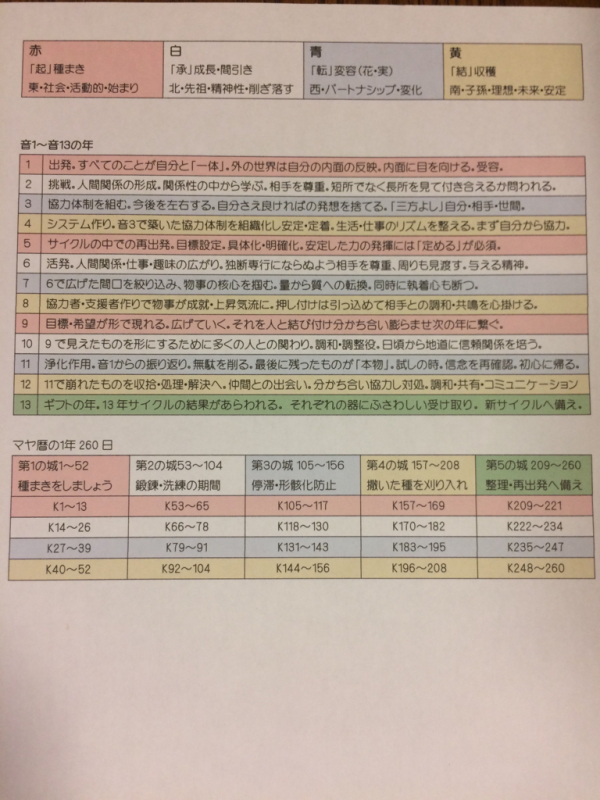 赤 白 青 黄
「起」種まき 「承」成長・間引き 「転」変容(花・実) 「結」収穫
東・社会・活動的・始まり 北・先祖・精神性・削ぎ落す 西・パートナシップ・変化 南・子孫・理想・未来・安定
音1〜音13の年
1 出発。すべてのことが自分と「一体」。外の世界は自分の内面の反映。内面に目を向ける。受容。
2 挑戦。人間関係の形成。関係性の中から学ぶ。相手を尊重。短所でなく長所を見て付き合えるか問われる。
3 協力体制を組む。今後を左右する。自分さえ良ければの発想を捨てる。「三方よし」自分・相手・世間。
4 システム作り。音3で築いた協力体制を組織化し安定・定着。生活・仕事のリズムを整える。まず自分から協力。
5 サイクルの中での再出発。目標設定。具体化・明確化。安定した力の発揮には「定める」が必須。
6 活発。人間関係・仕事・趣味の広がり。独断専行にならぬよう相手を尊重、周りも見渡す。与える精神。
7 6で広げた間口を絞り込み、物事の核心を掴む。量から質への転換。同時に執着心も断つ。
8 協力者・支援者作りで物事が成就・上昇気流に。押し付けは引っ込めて相手との調和・共鳴を心掛ける。
9 目標・希望が形で現れる。広げていく。それを人と結び付け分かち合い膨らませ次の年に繋ぐ。
10 9で見えたものを形にするために多くの人との関わり。調和・調整役。日頃から地道に信頼関係を培う。
11 浄化作用。音1からの振り返り。無駄を削る。最後に残ったものが「本物」。試しの時。信念を再確認。初心に帰る。
12 11で崩れたものを収拾・処理・解決へ。仲間との出会い。分かち合い協力し対処。調和・共有・コミュニケーション
13 ギフトの年。13年サイクルの結果があらわれる。それぞれの器にふさわしい受け取り。新サイクルへ備え。
マヤ暦の1年260日
第1の城1〜52 第2の城53〜104 第3の城105〜156 第4の城157〜208 第5の城209〜260
種まきをしましょう 鍛錬・洗練の期間 停滞・形骸化防止 撒いた種を刈り入れ 整理・再出発へ備え
K1〜13 K53〜65 K105〜117 K157〜169 K209〜221
K14〜26 K66〜78 K118〜130 K170〜182 K222〜234
K27〜39 K79〜91 K131〜143 K183〜195 K235〜247
K40〜52 K92〜104 K144〜156 K196〜208 K248〜260